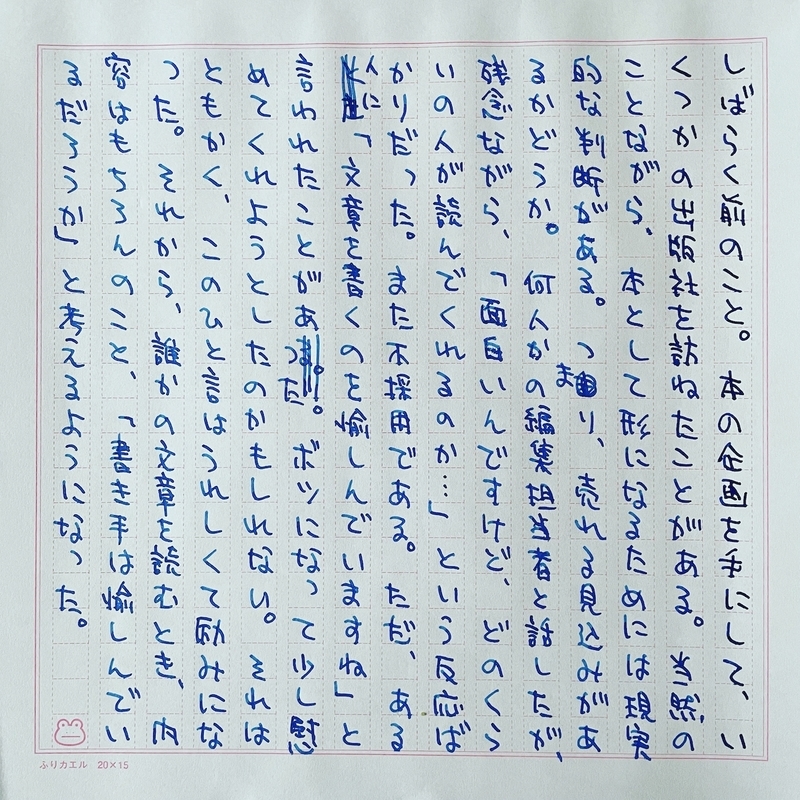 しばらく前のこと。本の企画を手にして、い
くつかの出版社を訪ねたことがある。当然の
ことながら、本として形になるためには現実
的な判断がある。つまり、売れる見込みがあ
るかどうか。何人かの編集担当者と話したが、
残念ながら、「面白いんですけど、どのくら
いの人が読んでくれるのか…」という反応ば
かりだった。また不採用である。ただ、ある
人に「文章を書くのを愉しんでいますね」と
言われたことがあった。ボツになって少し慰
めてくれようとしたのかもしれない。それは
ともかく、このひと言はうれしくて励みにな
った。それから、誰かの文章を読むとき、内
容はもちろんのこと、「書き手は愉しんでい
るだろうか」と考えるようになった。
ふりカエル 20×15